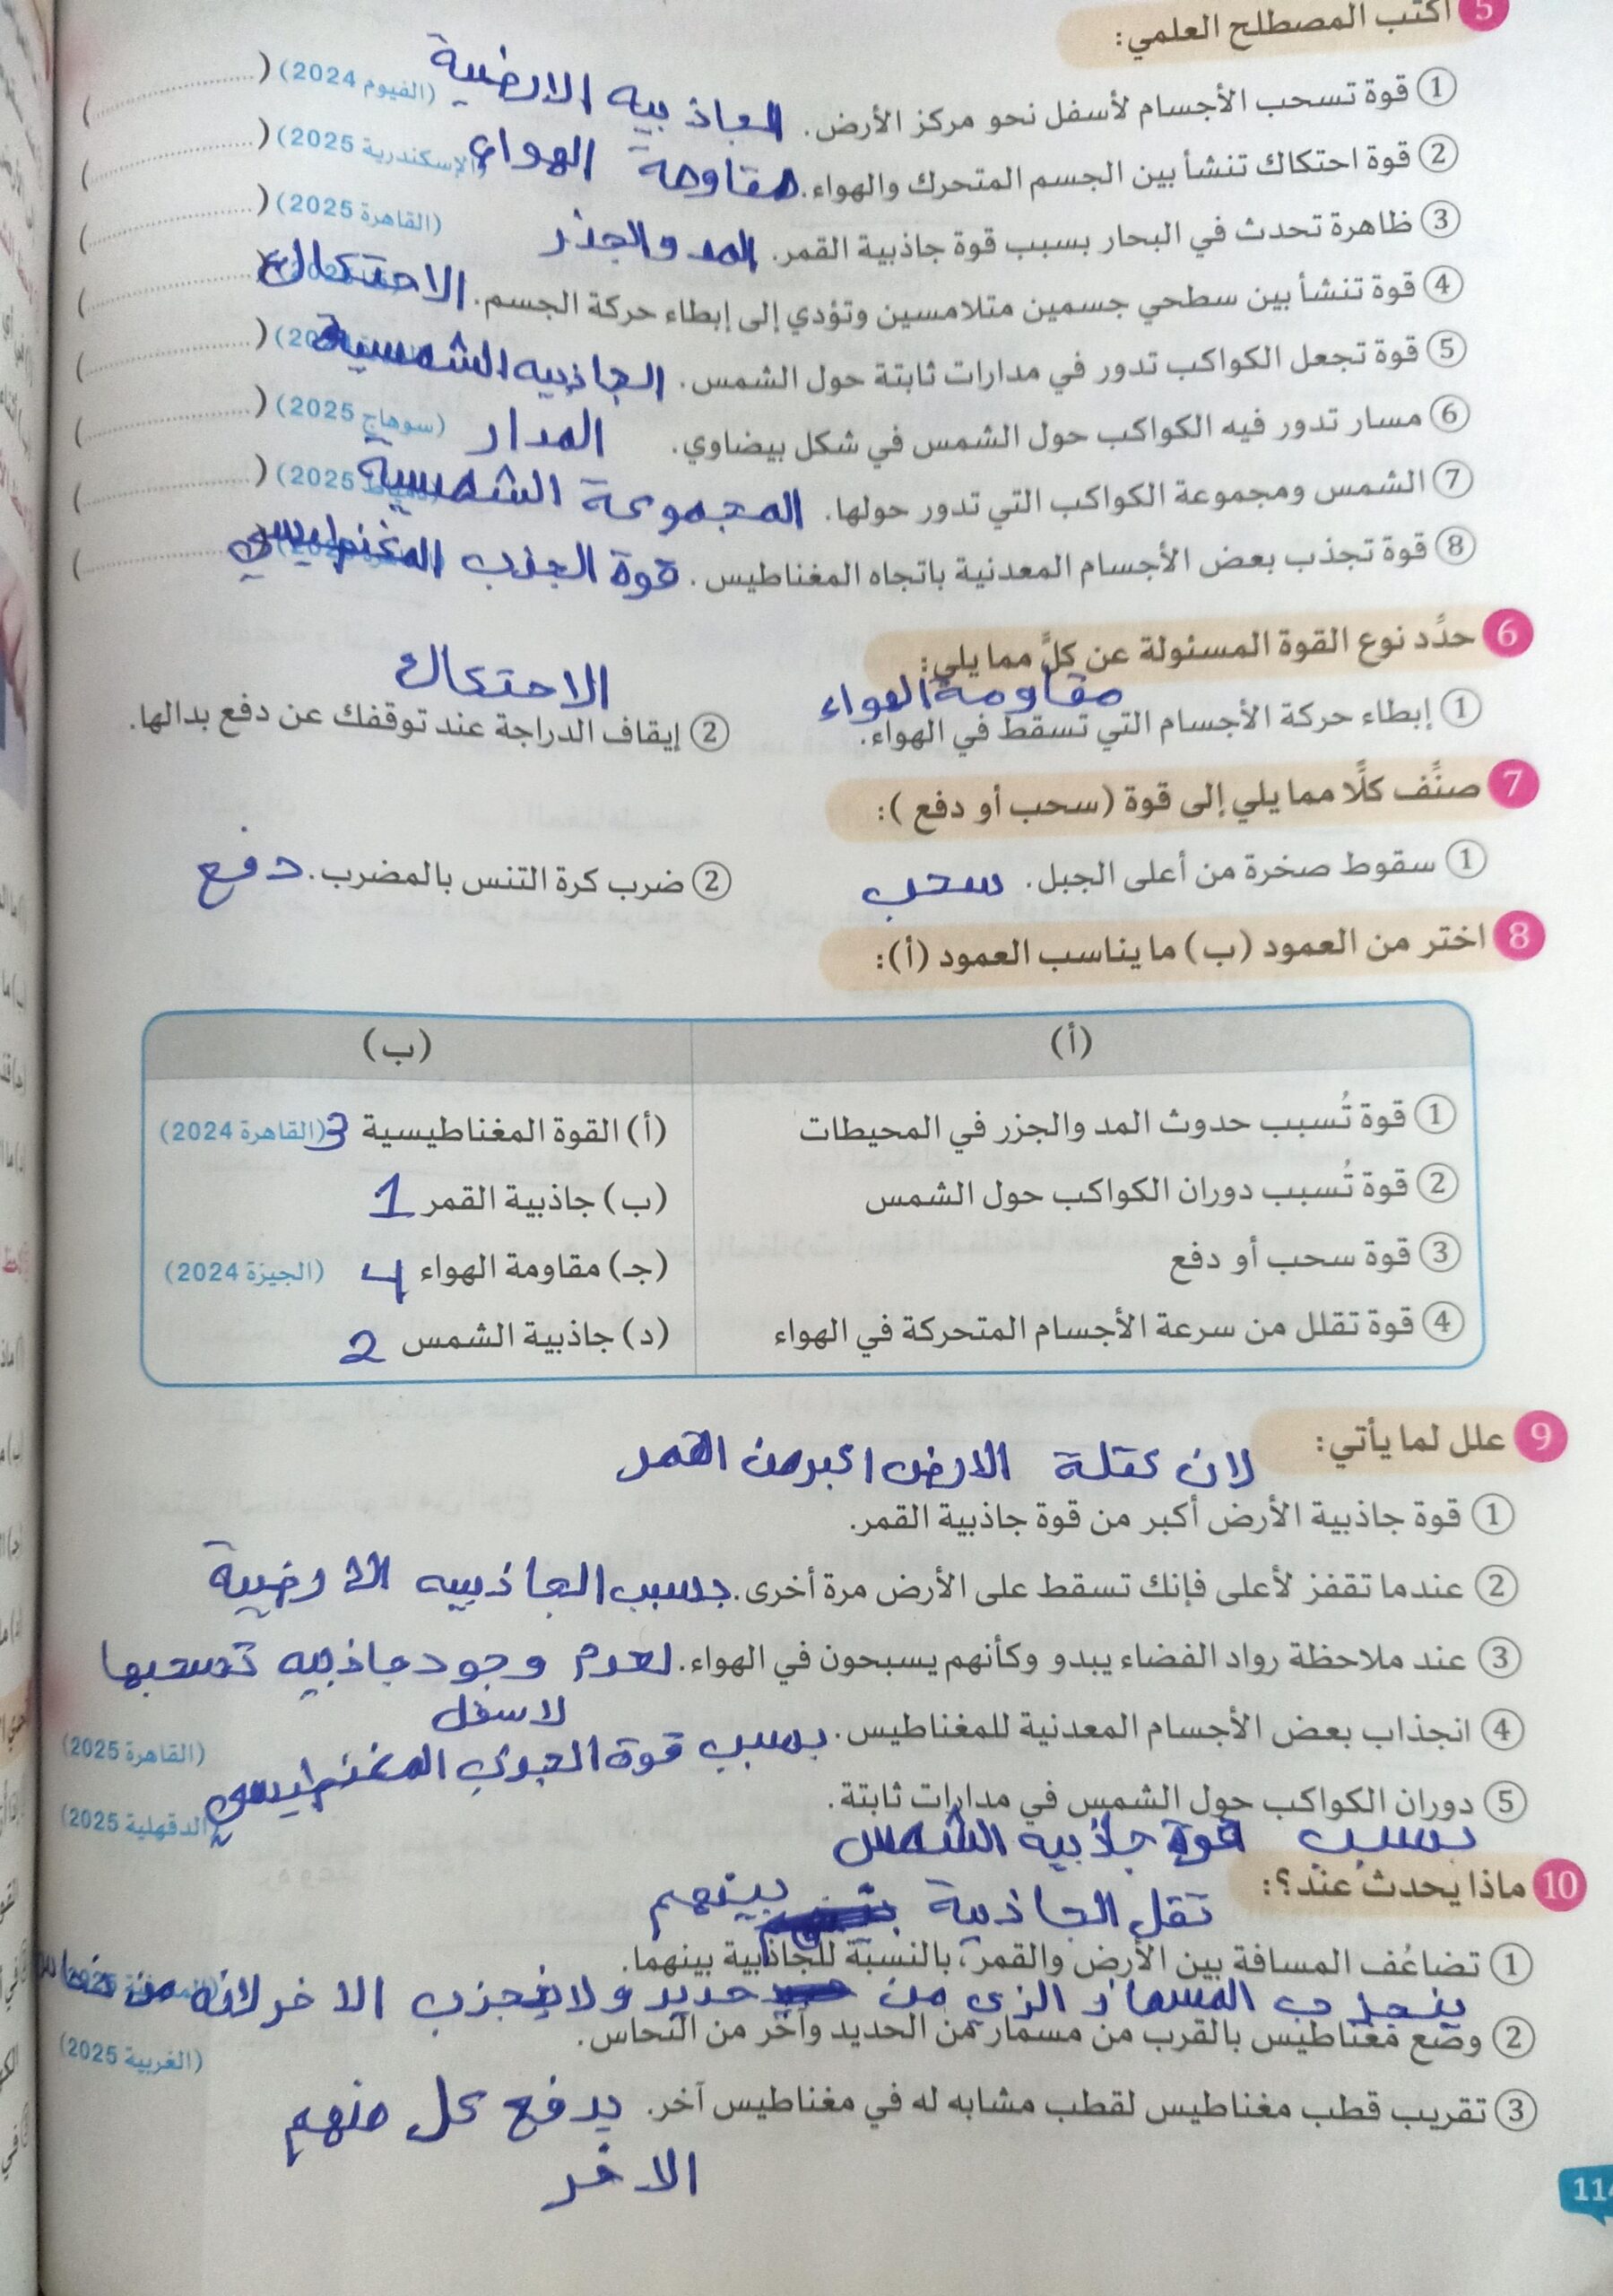 5 اكتب المصطلح العلمي:
① قوة تسحب الأجسام لأسفل نحو مركز الأرض. الجاذبيه الارضية (الفيوم 2024) (..............)
② قوة احتكاك تنشأ بين الجسم المتحرك والهواء. مقاومة الهواء (الإسكندرية 2025) (..............)
③ ظاهرة تحدث في البحار بسبب قوة جاذبية القمر. المد والجذر (القاهرة 2025) (..............)
④ قوة تنشأ بين سطحي جسمين متلامسين وتؤدي إلى إبطاء حركة الجسم. الاحتكاك (..............)
⑤ قوة تجعل الكواكب تدور في مدارات ثابتة حول الشمس. الجاذبيه الشمسية (..............)
⑥ مسار تدور فيه الكواكب حول الشمس في شكل بيضاوي. المدار (سوهاج 2025) (..............)
⑦ الشمس ومجموعة الكواكب التي تدور حولها. المجموعة الشمسية 2025) (..............)
⑧ قوة تجذب بعض الأجسام المعدنية باتجاه المغناطيس. قوة الجذب المغنطيسي (..............)
6 حدِّد نوع القوة المسئولة عن كلٍّ مما يلي:
مقاومة الهواء
الاحتكاك
① إبطاء حركة الأجسام التي تسقط في الهواء.
② إيقاف الدراجة عند توقفك عن دفع بدالها.
7 صنِّف كلًّا مما يلي إلى قوة (سحب أو دفع ):
① سقوط صخرة من أعلى الجبل. سحب
② ضرب كرة التنس بالمضرب. دفع
8 اختر من العمود (ب) ما يناسب العمود (أ):
(أ) (ب)
① قوة تُسبب حدوث المد والجزر في المحيطات (أ) القوة المغناطيسية 3 (القاهرة 2024)
② قوة تُسبب دوران الكواكب حول الشمس (ب) جاذبية القمر 1
③ قوة سحب أو دفع (جـ) مقاومة الهواء 4 (الجيزة 2024)
④ قوة تقلل من سرعة الأجسام المتحركة في الهواء (د) جاذبية الشمس 2
9 علل لما يأتي:
لان كتلة الارض اكبر من القمر
① قوة جاذبية الأرض أكبر من قوة جاذبية القمر.
② عندما تقفز لأعلى فإنك تسقط على الأرض مرة أخرى. بسبب الجاذبيه الارضية
③ عند ملاحظة رواد الفضاء يبدو وكأنهم يسبحون في الهواء. لعدم وجود جاذبيه تسحبها
لاسفل
④ انجذاب بعض الأجسام المعدنية للمغناطيس. بسبب قوة الجذب المغنطيسي (القاهرة 2025)
⑤ دوران الكواكب حول الشمس في مدارات ثابتة. (الدقهلية 2025)
بسبب قوة جاذبيه الشمس
10 ماذا يحدث عند؟:
تقل الجاذبية بينهم
① تضاعُف المسافة بين الأرض والقمر، بالنسبة للجاذبية بينهما.
ينجذب المسمار الذي من حديد ولا ينجذب الاخر لانه من نحاس
② وضع مغناطيس بالقرب من مسمار من الحديد وآخر من النحاس. (الغربية 2025)
③ تقريب قطب مغناطيس لقطب مشابه له في مغناطيس آخر. يدفع كل منهم
الاخر